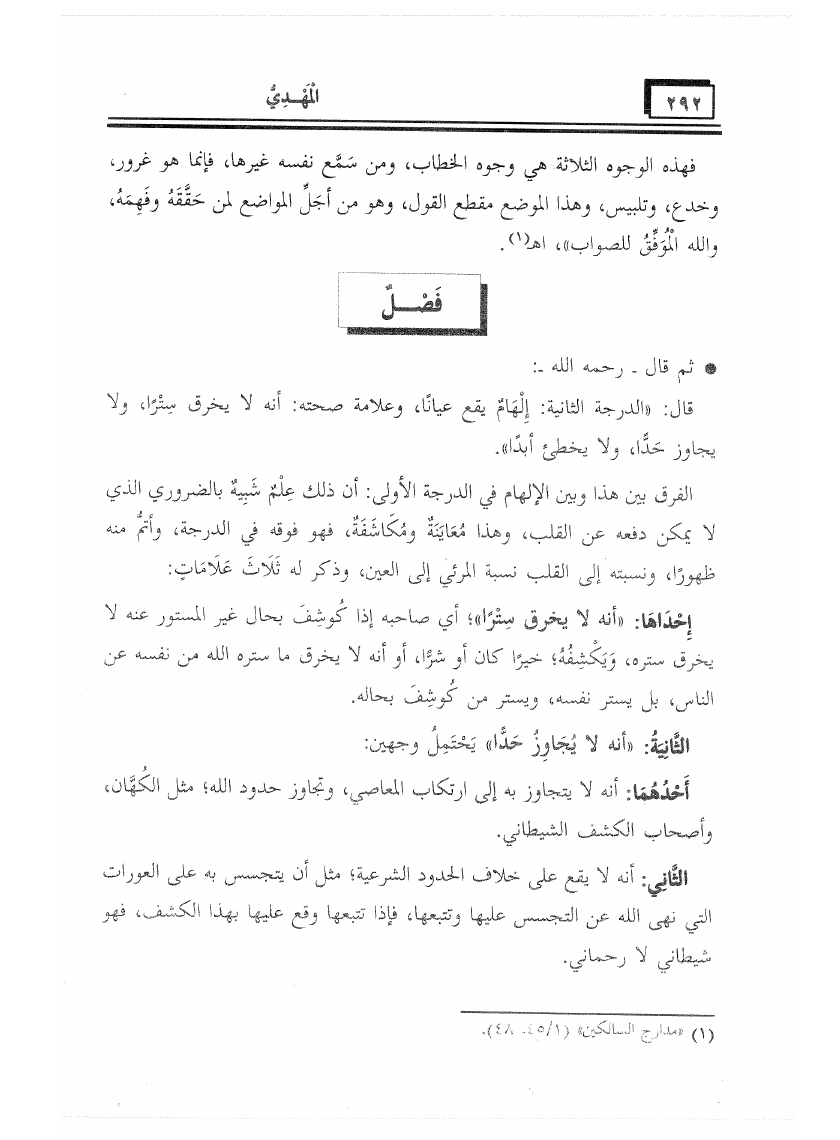 ٢٩٢
الْمَهْـدِيُّ
فهذه الوجوه الثلاثة هي وجوه الخطاب، ومن سَمَّع نفسه غيرها، فإنما هو غرور،
وخدع، وتلبيس، وهذا الموضع مقطع القول، وهو من أجَلِّ المواضع لمن حَقَّقَهُ وفَهِمَهُ،
والله الْمُوَفِّقُ للصواب»، اهـ(١).
فَصْـــلٌ
● ثم قال ـ رحمه الله ـ:
قال: «الدرجة الثانية: إِلْهَامٌ يقع عيانًا، وعلامة صحته: أنه لا يخرق سِتْرًا، ولا
يجاوز حَدًّا، ولا يخطئ أبدًا».
الفرق بين هذا وبين الإلهام في الدرجة الأولى: أن ذلك عِلْمٌ شَبِيهٌ بالضروري الذي
لا يمكن دفعه عن القلب، وهذا مُعَايَنَةٌ ومُكَاشَفَةٌ، فهو فوقه في الدرجة، وأتمُّ منه
ظهورًا، ونسبته إلى القلب نسبة المرئي إلى العين، وذكر له ثَلَاثَ عَلَامَاتٍ:
إِحْدَاهَا: «أنه لا يخرق سِتْرًا»؛ أي صاحبه إذا كُوشِفَ بحال غير المستور عنه لا
يخرق ستره، وَيَكْشِفُهُ؛ خيرًا كان أو شرًّا، أو أنه لا يخرق ما ستره الله من نفسه عن
الناس، بل يستر نفسه، ويستر من كُوشِفَ بحاله.
الثَّانِيَةُ: «أنه لا يُجَاوِزُ حَدًّا» يَحْتَمِلُ وجهين:
أَحْدُهُمَا: أنه لا يتجاوز به إلى ارتكاب المعاصي، وتجاوز حدود الله؛ مثل الكُهَّان،
وأصحاب الكشف الشيطاني.
الثَّانِي: أنه لا يقع على خلاف الحدود الشرعية؛ مثل أن يتجسس به على العورات
التي نهى الله عن التجسس عليها وتتبعها، فإذا تتبعها وقع عليها بهذا الكشف، فهو
شيطاني لا رحماني.
(١) «مدارج السالكين» (٤٥/١ـ ٤٨).